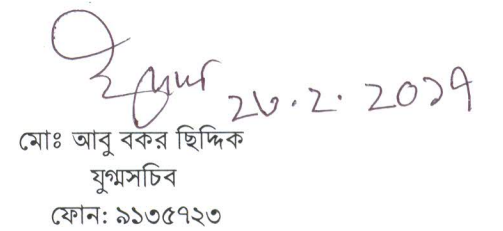 ২৩.২.২০১৭
মোঃ আবু বকর ছিদ্দিক
যুগ্মসচিব
ফোন: ৯১৩৫৭২৩